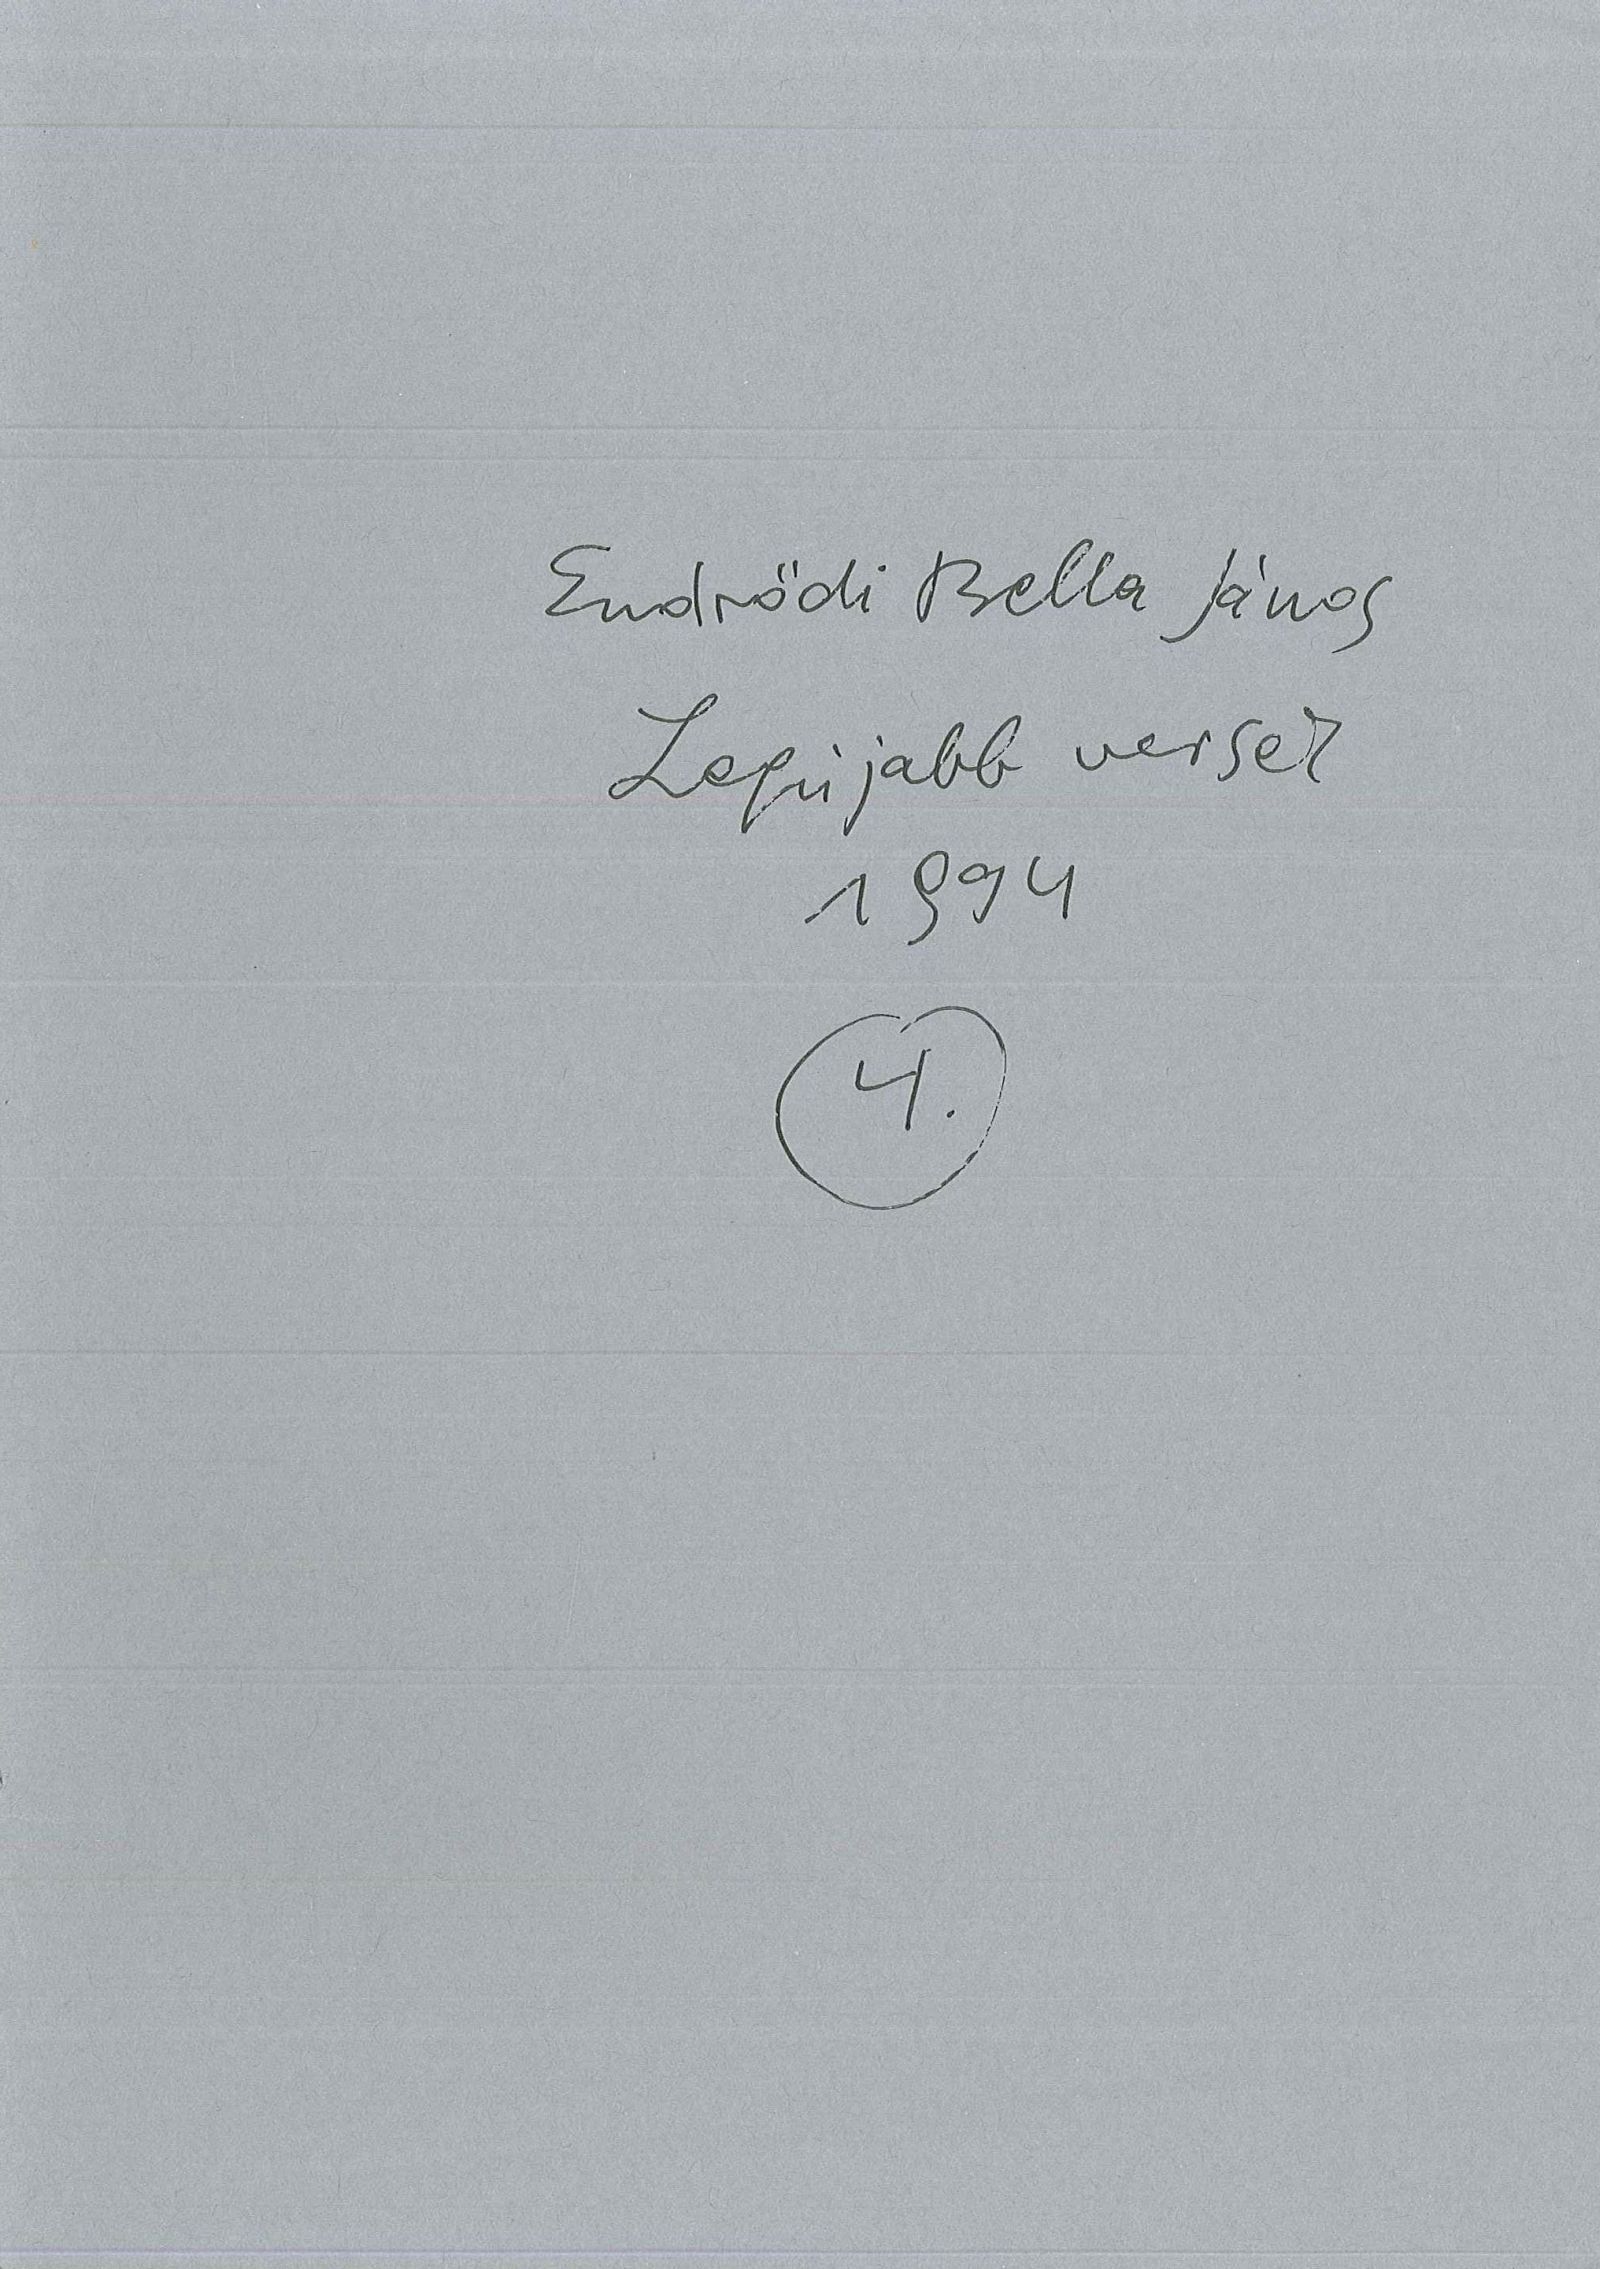 Endrődi Bella János
Legújabb versei
1994
4.